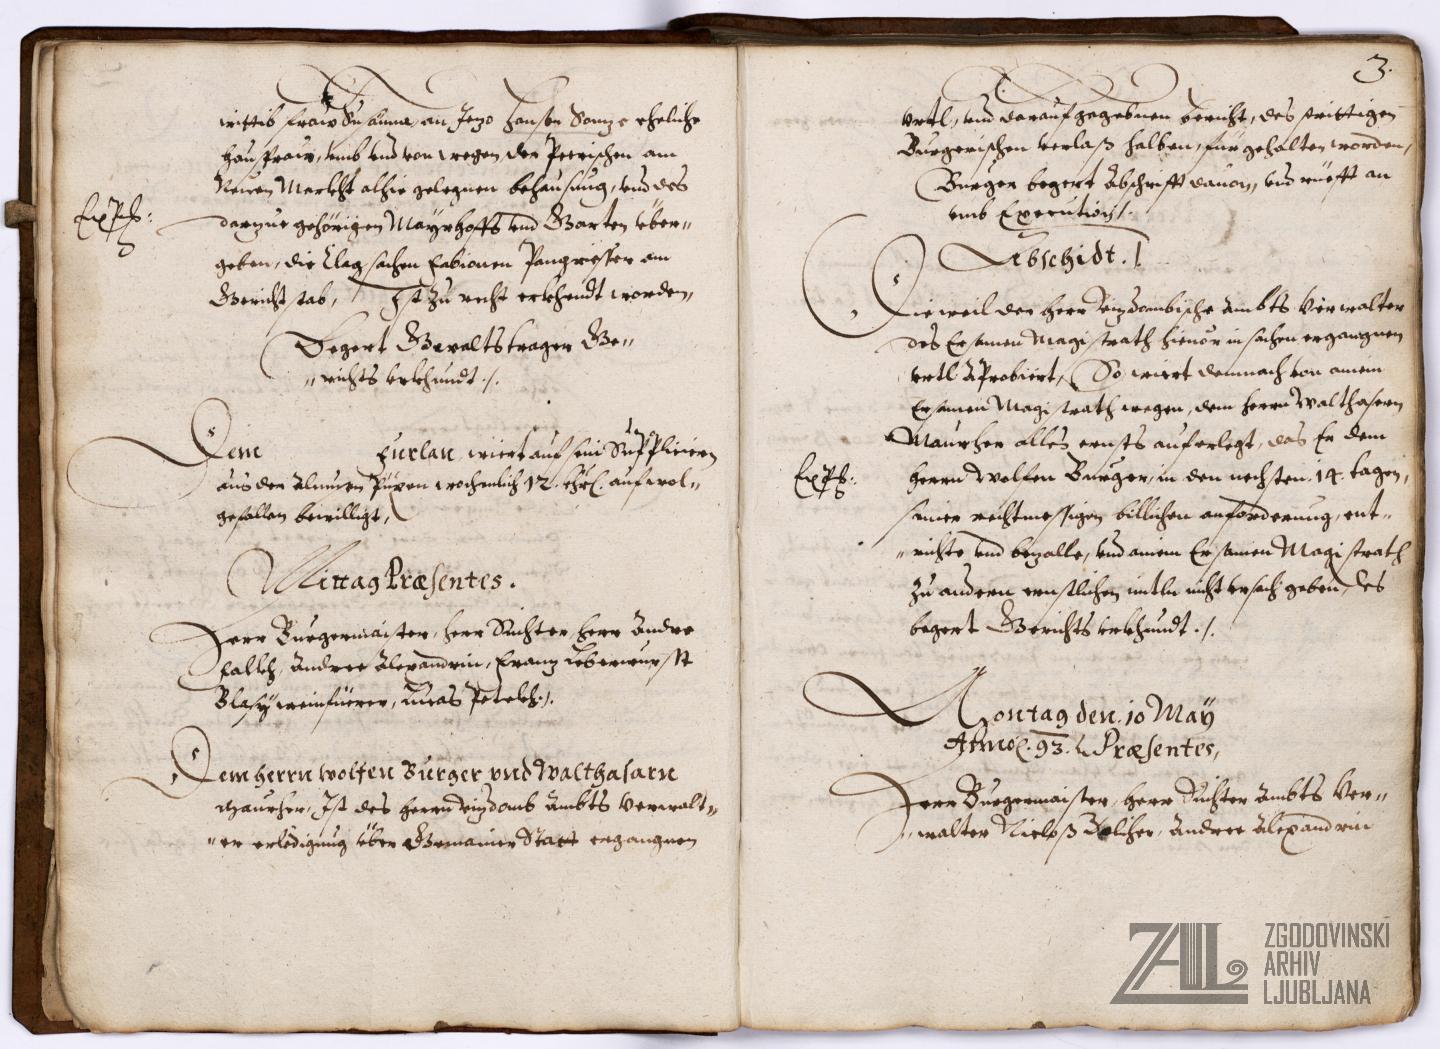 wittib Fraw Susanna, an Jezo Hansen Sonze eheliche
Haußfraw, vmb vnd von wegen, der Petrischen am
Neuen Marckht alhie gelegnen behausung, vnd des
Exp:
darzue gehörigen Mayrhoffs vnd Garten über-
geben, die Clag sachen Fabionen Pangretsser am
Gerichtstab, Ist zu recht erkhendt worden,
Begert Gwaltstrager Ge-
richts vrkhundt ./.
Dem Furlan, wiert auf sein Suppliciern
aus der Almusen Püxen wochenlich 12. khr. auf wol-
gefallen bewilligt,
Mittag Præsentes.
Herr Burgermaister, Herr Richter, Herr Andre
Falkh, Andree Alexandrin, Franz Leberwurst
Blasy weinfüerer, Lucas Petekh ./.
Dem herrn Wolfen Burger vnd Walthasarn
Maurher, Ist des Herrn Vizdomb Ambts Verwalt-
er erledigung über Gemainer Statt ergangnen
3.
vrtl, vnd darauf gegebnen bericht, des strittigen
Burgerischen verlaß halben, fürgehalten worden,
Burger begert Abschrifft dauon, vnd rüefft an
vmb Execution ./.
Abschidt ./
Dieweil der Herr Vizdombische Ambts Verwalter
des Ersamen Magistrath hieuor in sachen ergangnen
vrtl Aprobiert, So wiert demnach von ainem
Ersamen Magistrath wegen, dem Herrn Walthasern
Maurher alles ernsts auferlegt, das Er dem
Exp:
Herrn Wolfen Burger, in den nechsten .14. tagen,
seiner rechtmessigen billichen anforderung, ent-
richte vnd bezalle, vnd ainem Ersamen Magistrath
zu andern ernstlichen mitln nicht vrsach geben, des
begert Gerichts vrkhundt ./.
Montag den .10 May
Anno .93. Præsentes,
Herr Burgermaister, Herr Richter Ambts Ver-
walter Niclaß Andree Alexandrin
ZAL ZGODOVINSKI
ARHIV
LJUBLJANA